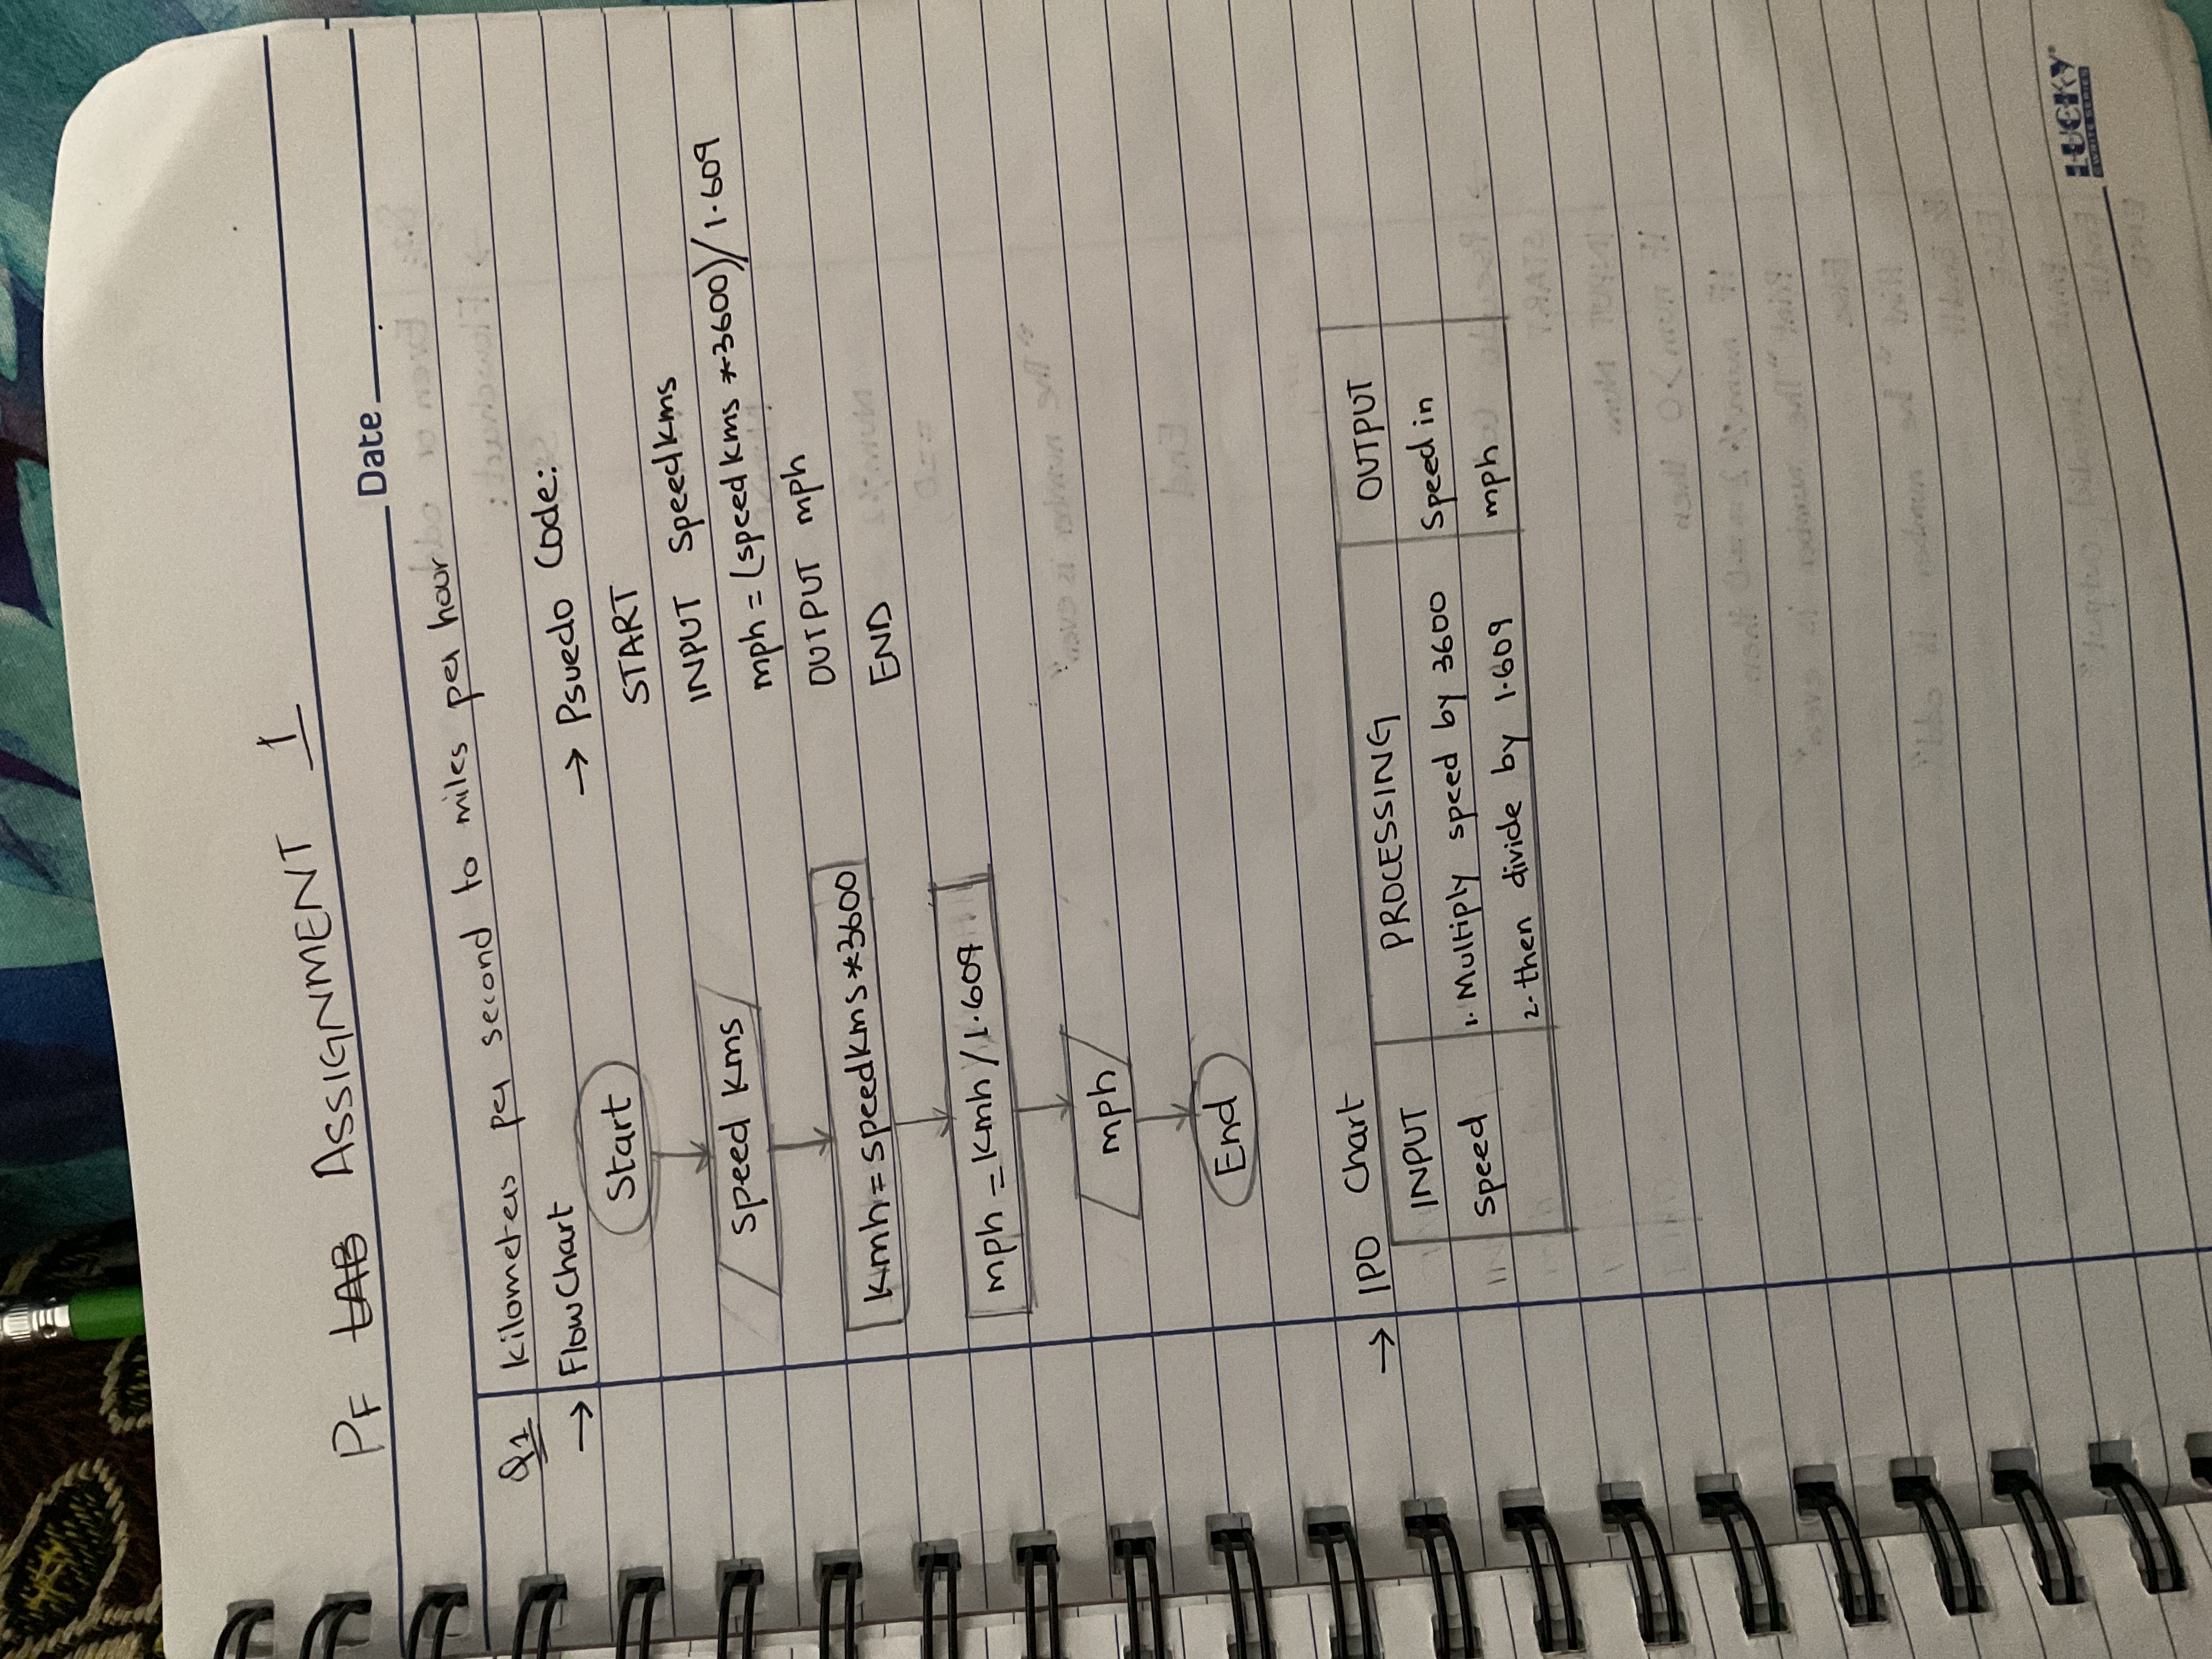 PF LAB ASSIGNMENT 1
Date
Q1 kilometers per second to miles per hour
→ Flow Chart
Start
speed kms
kmh = speedkms *3600
mph = kmh / 1.609
mph
End
→ Psuedo Code:
START
INPUT Speedkms
mph = (speed kms *3600)/1.609
OUTPUT mph
END
→ IPO Chart
INPUT PROCESSING OUTPUT
Speed 1. Multiply speed by 3600 Speed in
2. then divide by 1.609 mph
LUCKY